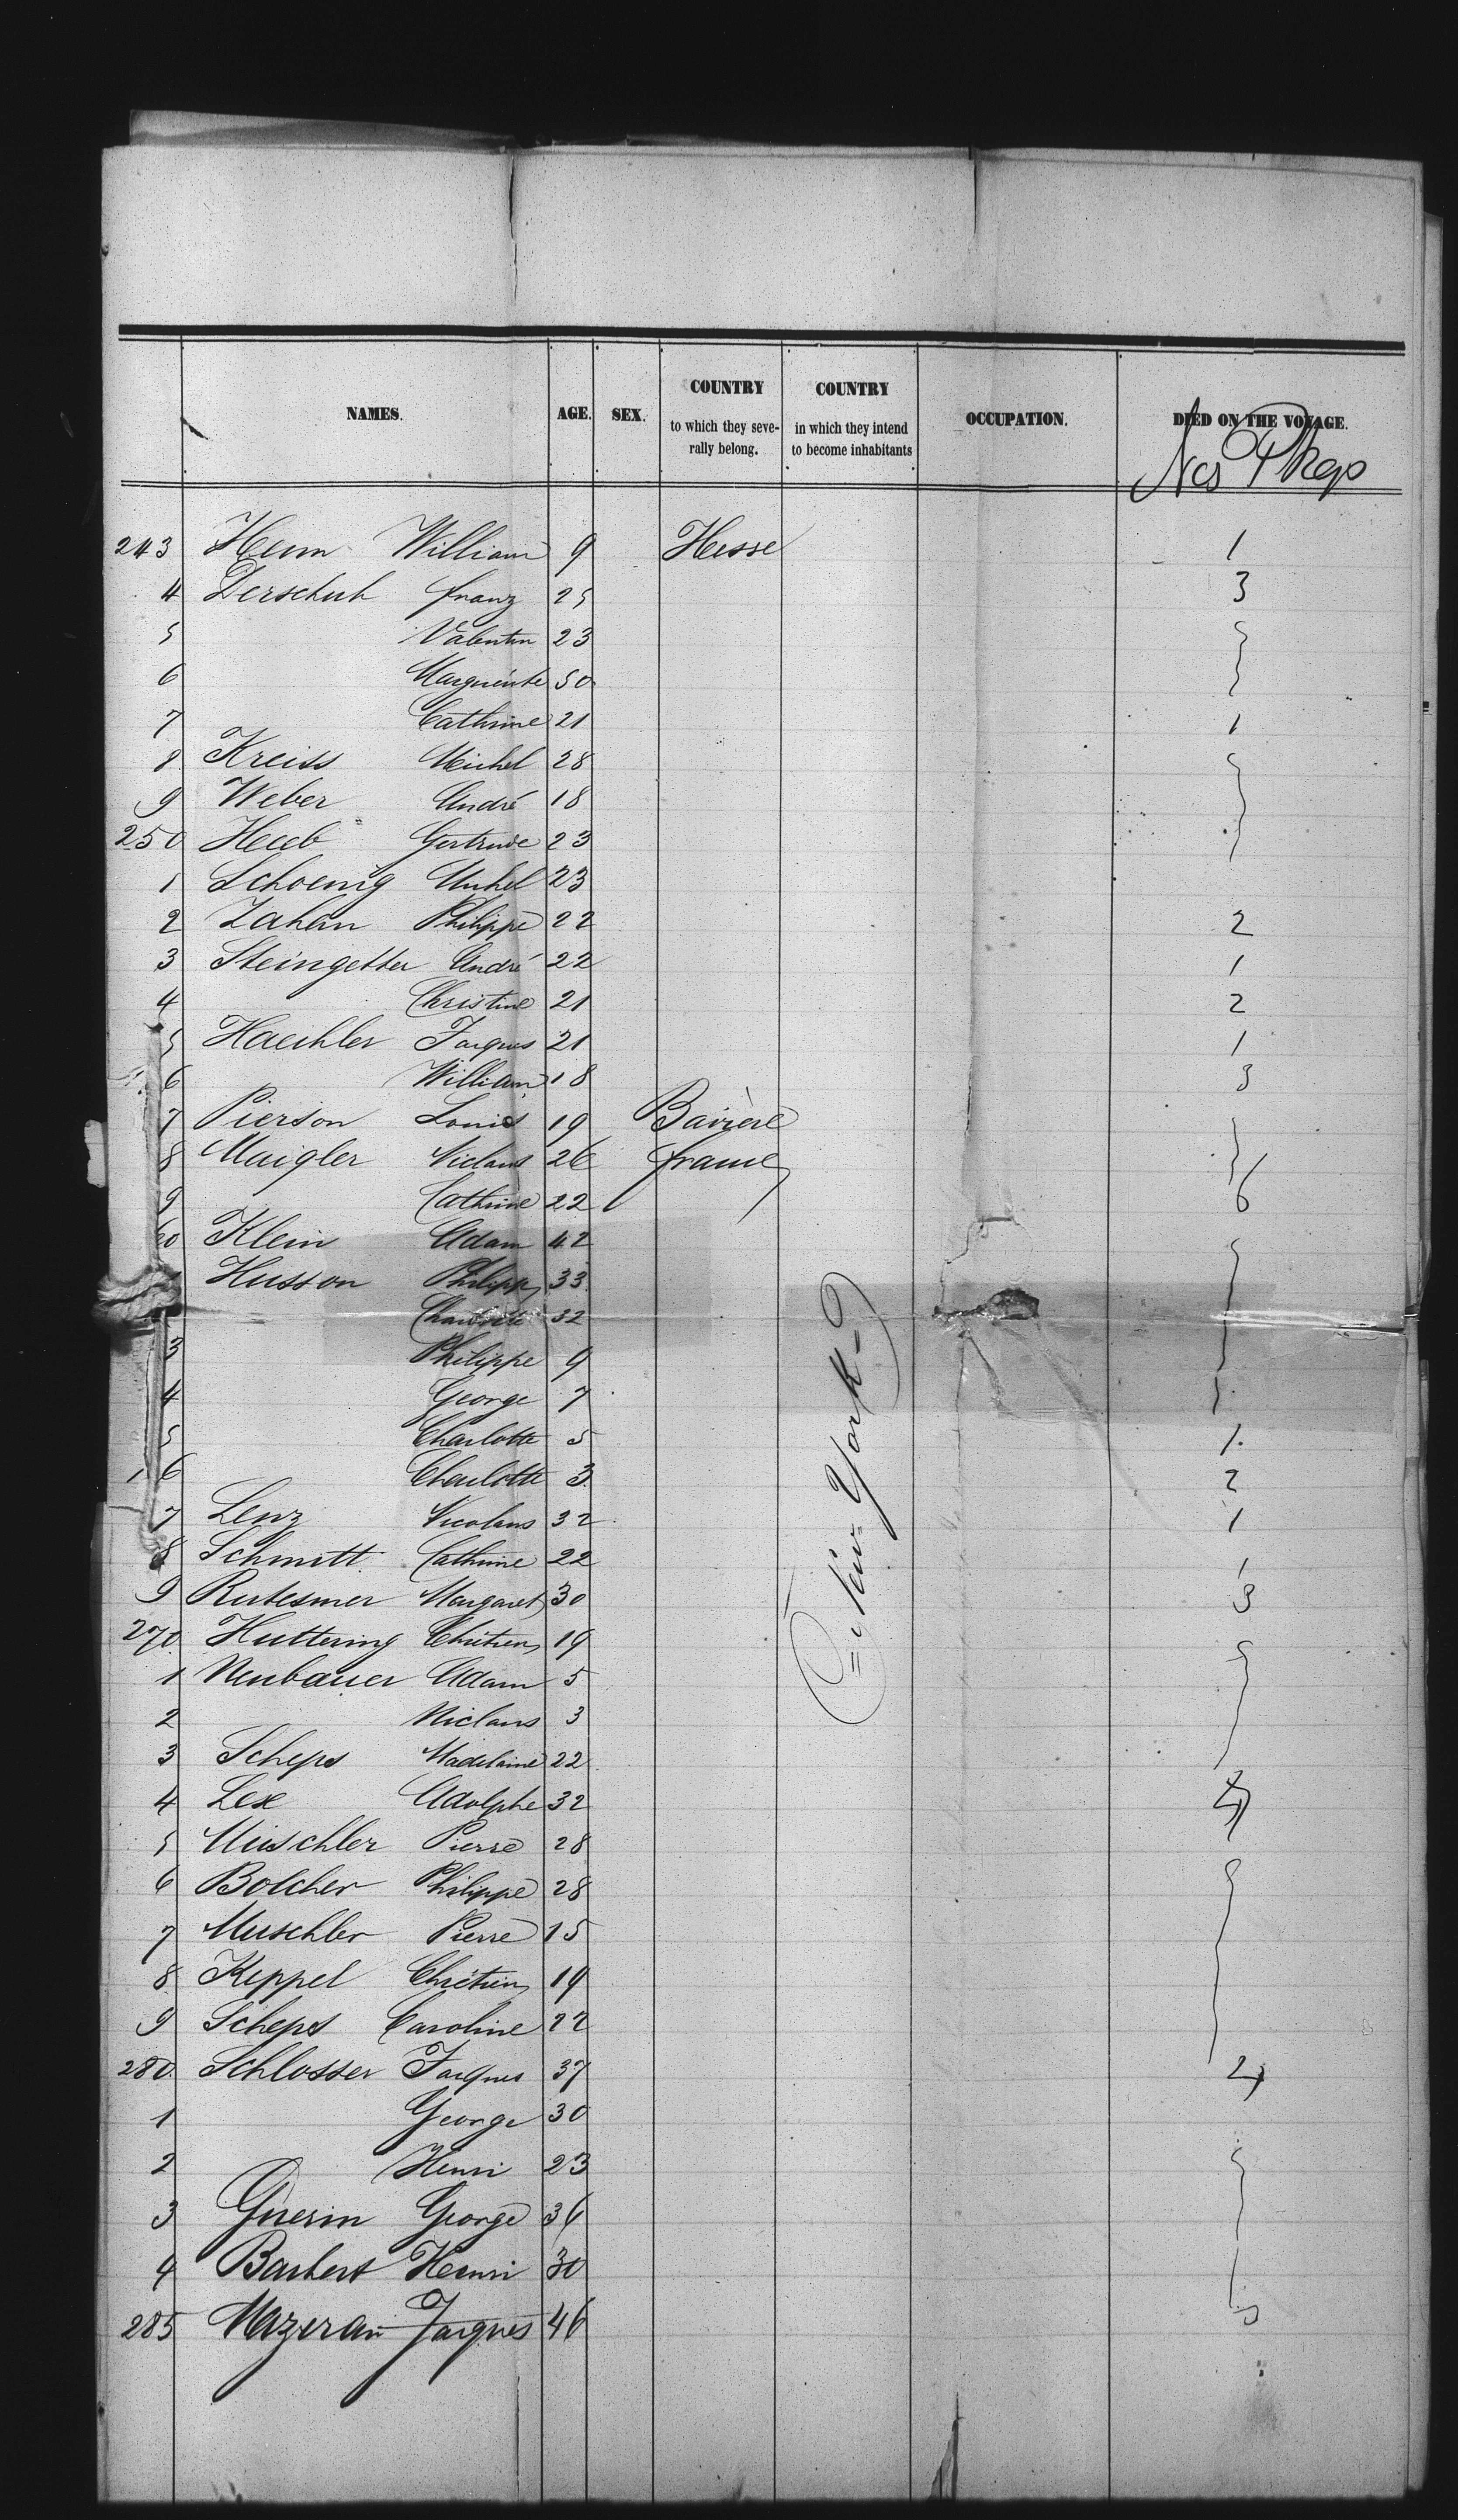 NAMES. AGE. SEX. COUNTRY to which they seve- rally belong. COUNTRY in which they intend to become inhabitants OCCUPATION. DIED ON THE VOYAGE.
Nos Pkgs
243 Heim William 9 Hesse 1
4 Derschuh franz 25 3
5 Valentin 23
6 Marguerite 50
7 Cathrine 21 1
8 Kreiss Michel 28
9 Weber André 18
250 Heeb Gertrude 23
1 Schoenig Michel 23
2 Zahan Philippe 22 2
3 Steingetter André 22 1
4 Christine 21 2
5 Haechler Jaques 21 1
6 William 18 3
7 Pierson Louis 19 Bavière
8 Maigler Niclaus 26 france
9 Cathrine 22 6
60 Klein Adam 42
Husson Philippe 33
32
3 Philippe 9
4 George 7
5 Charlotte 5 1
6 Charlotte 3 2
7 Lenz Nicolaus 32 1
8 Schmitt Cathrine 22 1
9 Rutesmer Margaret 30 3
270 Huttering Chrétien 19
1 Neubauer Adam 5
2 Niclaus 3
3 Scheps Madelaine 22
4 Lex Adolphe 32
5 Müschler Pierre 28
6 Bolcher Philippe 28
7 Muschler Pierre 15
8 Keppel Chrétien 19
9 Scheps Caroline 22
280 Schlosser Jaques 37 2
1 George 30
2 Henri 23
3 Guerin George 36
4 Barbert Henri 30
285 Mazeran Jaques 46
New York